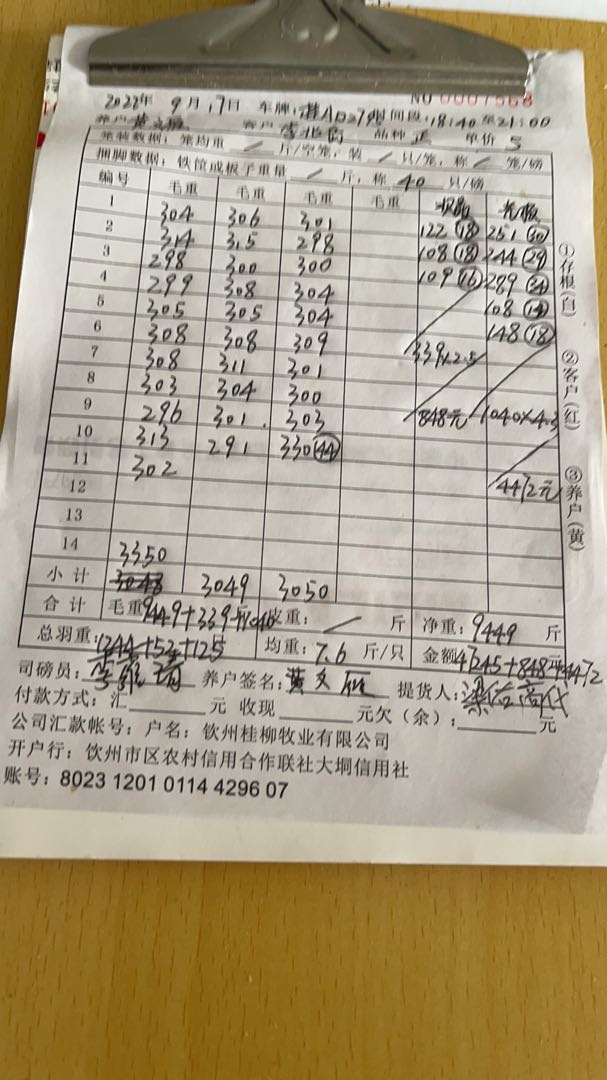 NO 0007568
2022年 9月17日 车牌: 时间段:18:40至21:00
养户 客户 品种 正 单价 5
笼装数据:笼均重 / 斤/空笼,装 / 只/笼,称 / 笼/磅
捆脚数据:铁筐或板子重量 / 斤,称 40 只/磅
编号 毛重 毛重 毛重 毛重
1 304 306 301 122 (18) 251 (30)
2 314 315 298 108 (18) 244 (29)
3 298 300 300 109 (16) 289 (34)
4 299 308 304 108 (14)
5 305 305 304 148 (18)
6 308 308 309 339×2.5
7 308 311 301
8 303 304 300 848元 1040×4.3
9 296 301 303
10 313 291 330 (44) 4472元
11 302
12
13
14
3350
小计 3049 3050
合计 毛重:9449+339+1040 皮重: / 斤 净重:9449 斤
总羽重:1244+52+125 均重:7.6 斤/只 金额 47245+848+4472
司磅员: 养户签名:黄文 提货人:
付款方式:汇 元 收现 元欠(余): 元
公司汇款帐号:户名:钦州桂柳牧业有限公司
开户行:钦州市区农村信用合作联社大垌信用社
账号:8023 1201 0114 4296 07
①存根(白) ②客户(红) ③养户(黄)